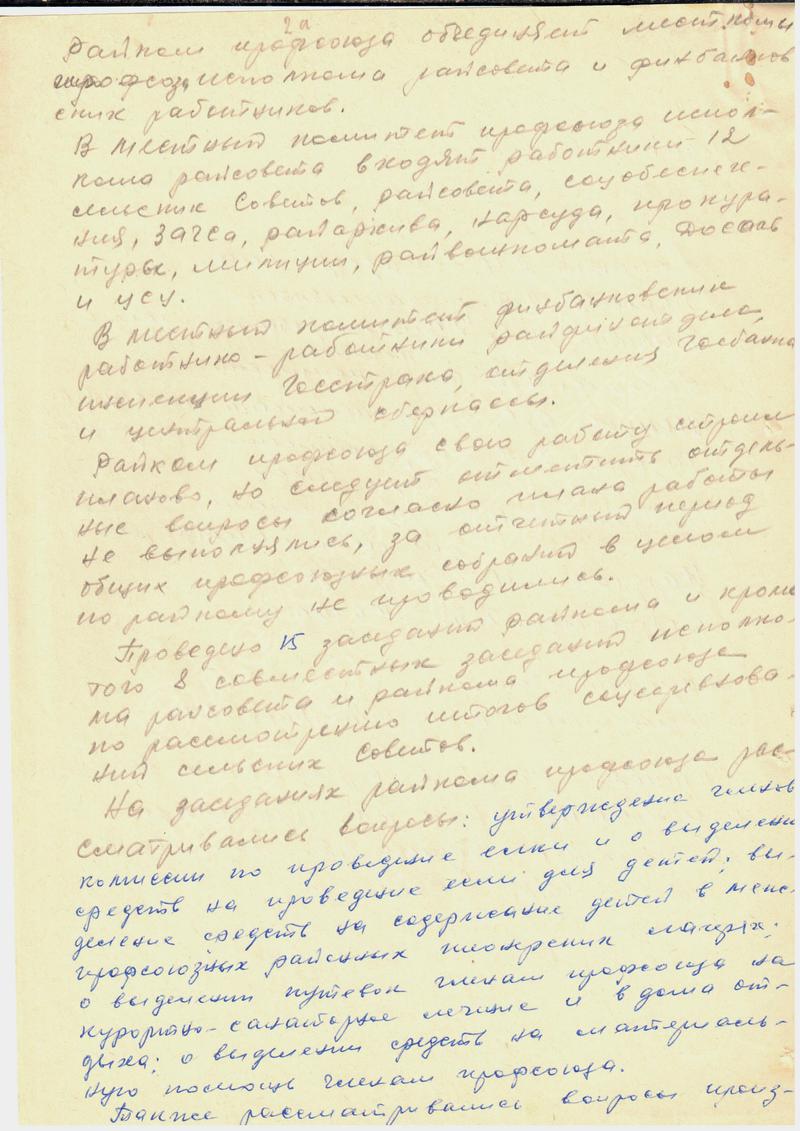 2а
Райком профсоюза объединяет месткомы
профсоюз исполкома райсовета и финбанков
ских работников.
В местный комитет профсоюза испол-
кома райсовета входят работники 12
сельских Советов, райсовета, соцобеспече-
ния, ЗАГСа, райархива, нарсуда, прокура-
туры, милиции, райвоенкомата,
и ЦСУ.
В местный комитет финбанковских
работнико - работники райфинотдела,
инспекции Госстраха, отделения Госбанка
и центральной сберкассы.
Райком профсоюза свою работу строил
планово, но следует отметить отдель-
ные вопросы согласно плана работы
не выполнялись, за отчетный период
общих профсоюзных собраний в целом
по райкому не проводились.
Проведено 15 заседаний райкома и кроме
того 8 совместных заседаний исполко-
ма райсовета и райкома профсоюза
по рассмотрению итогов соцсоревнова-
ний сельских Советов.
На заседаниях райкома профсоюза рас-
сматривались вопросы: утверждение членов
комиссии по проведение елки и о выделении
средств на проведение елки для детей; вы-
деление средств на содержание детей в меж-
профсоюзных районных пионерских лагерях;
о выделении путевок членам профсоюза на
курортно-санаторное лечение и в дома от-
дыха; о выделении средств на материаль-
ную помощь членам профсоюза.
Также рассматривались вопросы произ-